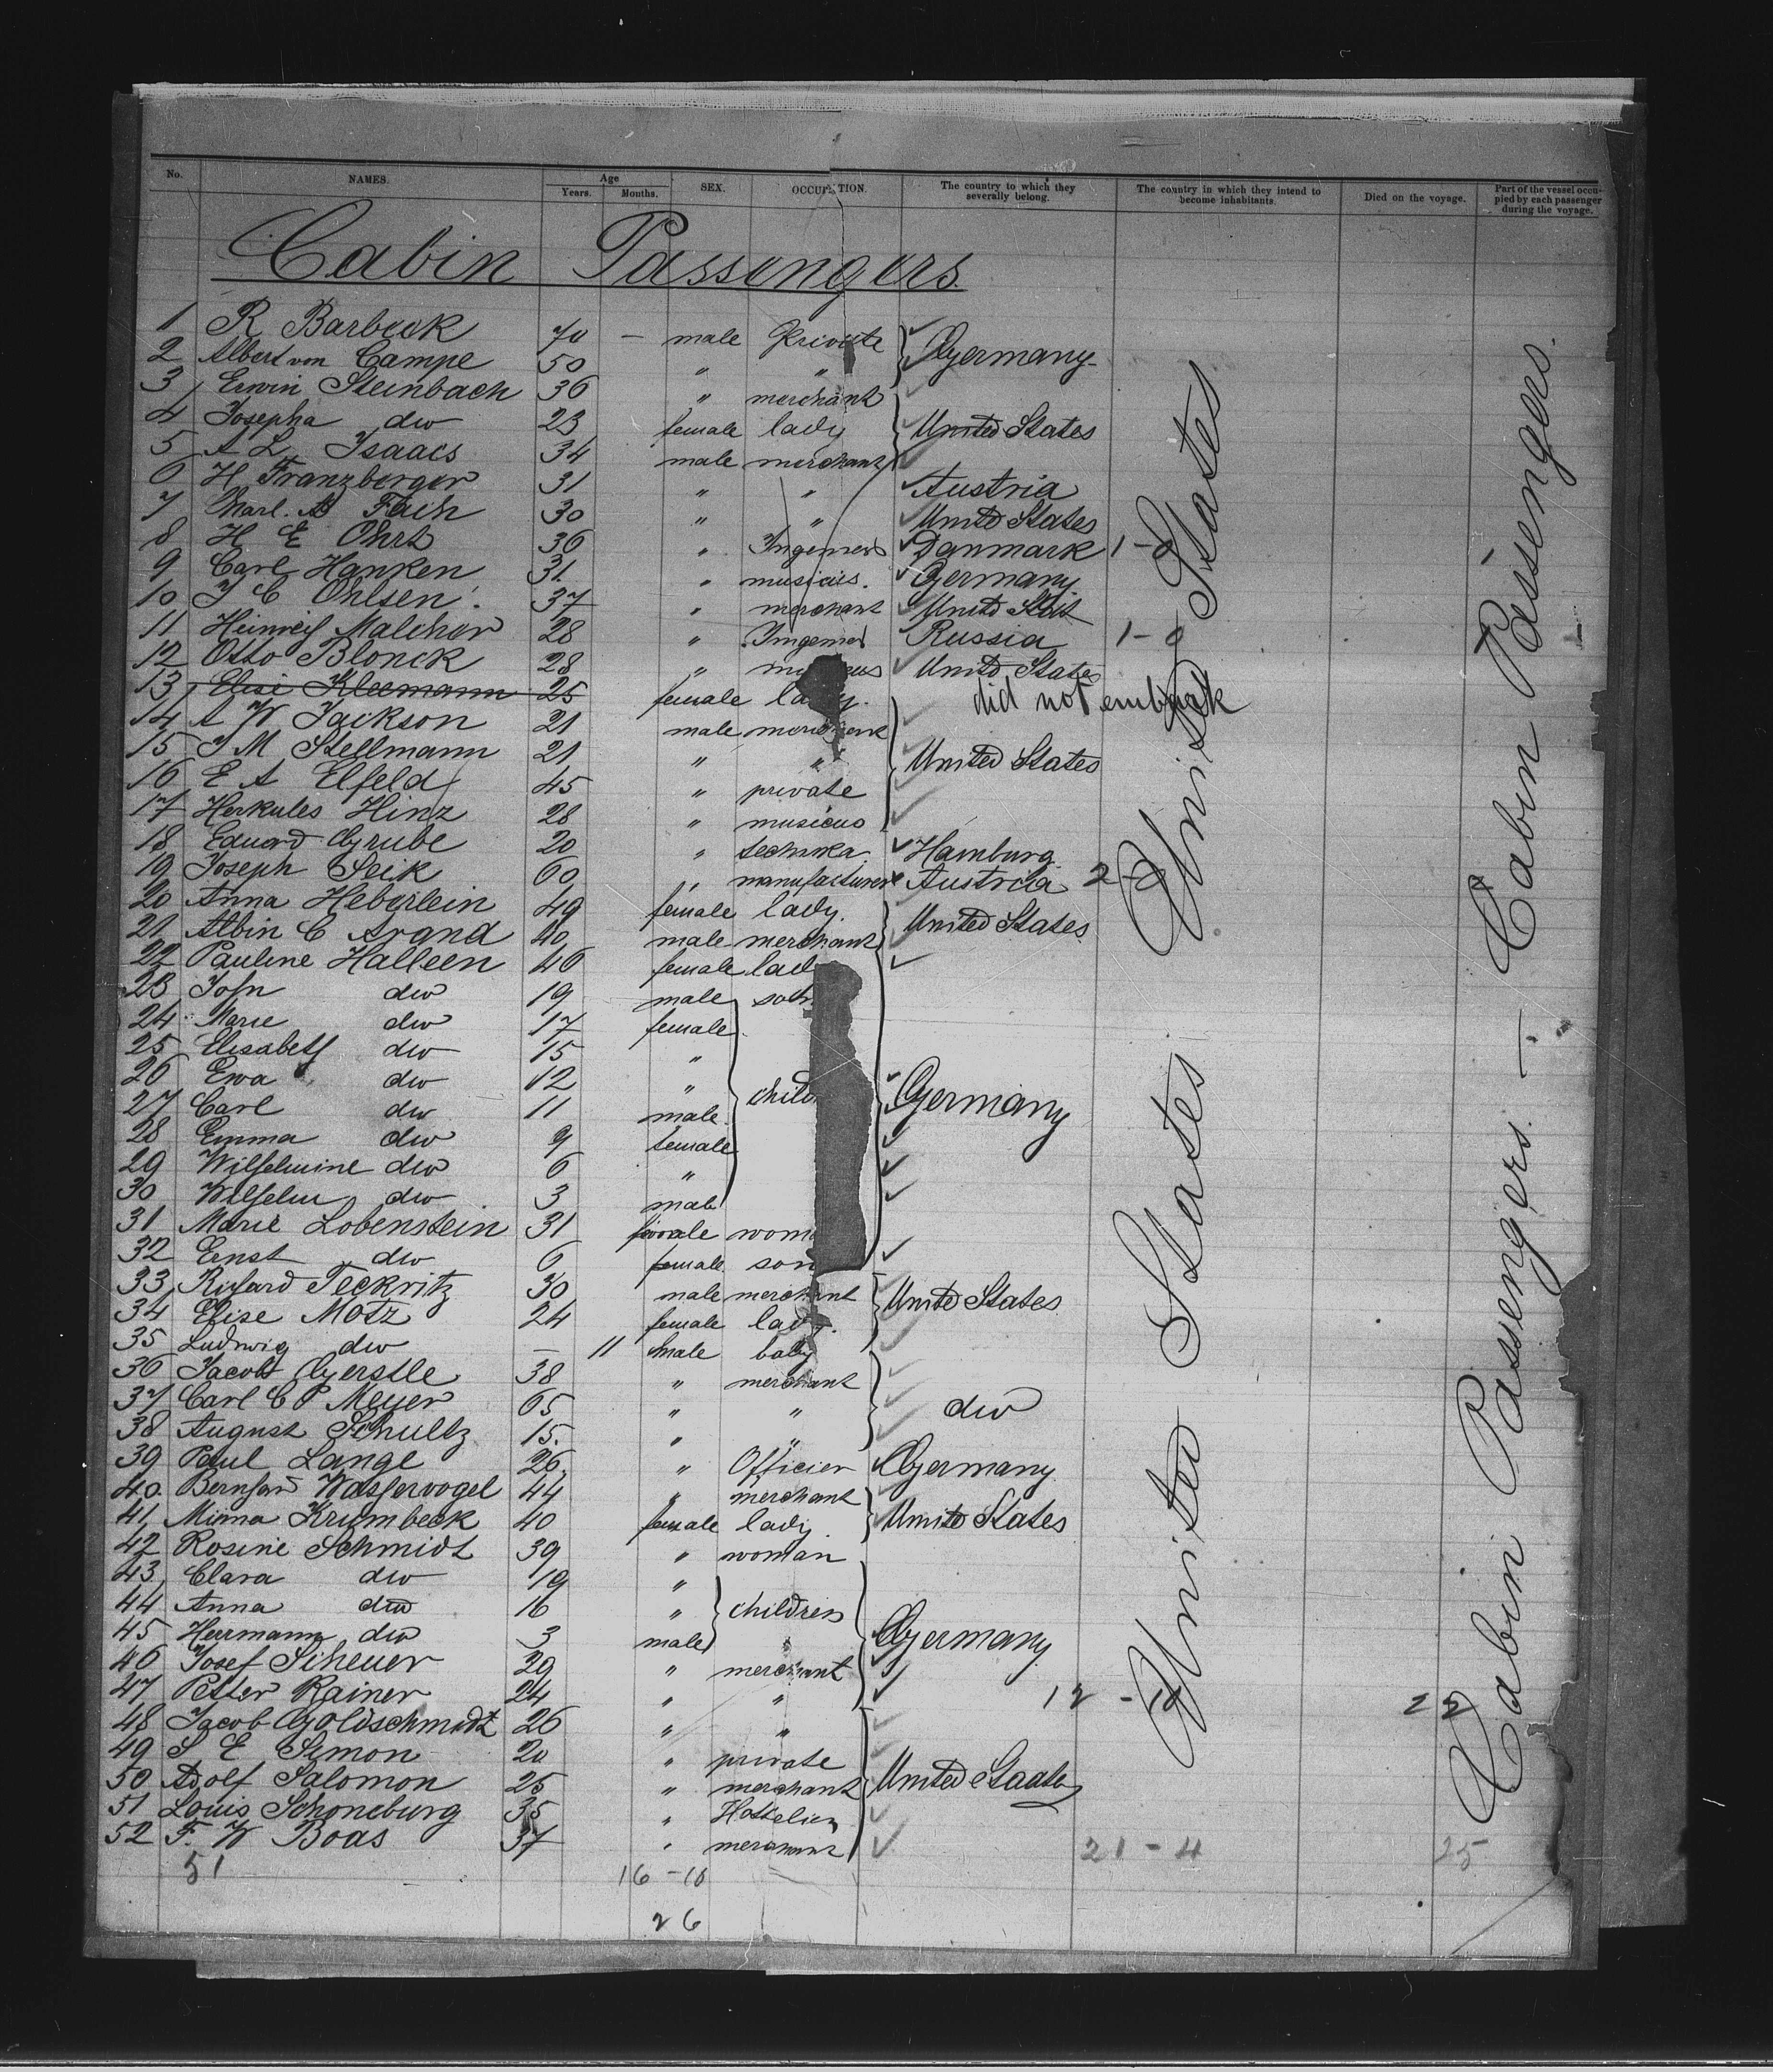 No. NAMES. Age Years. Months. SEX. OCCUPATION. The country to which they severally belong. The country in which they intend to become inhabitants. Died on the voyage. Part of the vessel occupied by each passenger during the voyage.
Cabin Passengers.
1 R Barbeck 70 — male Private
2 Albert von Campe 50 " " Germany
3 Erwin Steinbach 36 " merchant
4 Josepha do 23 female lady United States
5 A L Isaacs 34 male merchant
6 H Franzberger 31 " " Austria
7 30 " " United States
8 H E Ohrt 36 " Danmark 1-0
9 Carl Hanken 31 " musicus. Germany
10 J C Ohlsen. 37 " merchant
11 Heinrich Malchor 28 " Russia 1-0
12 Otto Blonck 28 " United States
13 Elise Kleemann 25 female lady. did not embark
14 A W Jackson 21 male
15 J M Stellmann 21 " " United States
16 E A Elfeld 45 " private
17 Herkules Hinz 28 " musicus
18 Eduard Grube 20 " Hamburg
19 Joseph Seik 60 " manufacturer Austria 2-0
20 Anna Heberlein 49 female lady. United States
21 Albin C Arand 40 male merchant
22 Pauline Halleen 46 female lad
23 John do 19 male
24 Marie do 17 female
25 Elisabeth do 15 "
26 Ewa do 12 " child Germany
27 Carl do 11 male
28 Emma do 9 female
29 Wilhelmine do 6 "
30 Wilhelm do 3 male
31 Marie Lobenstein 31 female wom
32 Ernst do 6 female son
33 Richard Teckritz 30 male merchant United States
34 Elise Motz 24 female lady.
35 Ludwig do — 11 male baby
36 Jacob Gerstle 38 " merchant
37 Carl C P Meyer 65 " " do
38 August Schultz 15. " "
39 Paul Lange 26 " Officier Germany
40. Bernhard Wasservogel 44 " merchant
41 Minna Krumbeck 40 female lady. United States
42 Rosine Schmidt 39 " woman
43 Clara do 19 "
44 Anna do 16 " children
45 Herrmann do 3 male " Germany
46 Josef Scheuer 29 " merchant
47 Petter Rainer 24 " " 12 - 22
48 Jacob Goldschmidt 26 " "
49 S E Simon 20 " private
50 Adolf Salomon 25 " merchant United Staates
51 Louis Schoneburg 35 "
52 F. W Boas 37 " merchant 21-4 25
51 16-10
26
United States
United States
Cabin Passengers — Cabin Passengers.